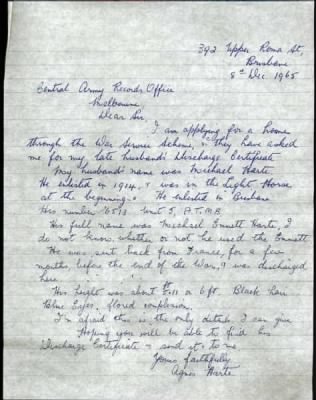 392 Upper Roma St,
Brisbane
8th Dec 1965
Central Army Records Office
Melbourne
Dear Sir,
I am applying for a home
through the War Service Scheme, & they have asked
me for my late husband's Discharge Certificate
My husband's name was Michael Harte
He enlisted in 1914, & was in the Light Horse
at the beginning. He enlisted in Brisbane
His number 6513 Unit 5,
His full name was Michael Emmett Harte, I
do not know whether or not he used the Emmett
He was sent back from France, for a few
months before the end of the War, & was discharged
here
His height was about 5ft 11 or 6ft. Black hair
Blue Eyes, complexion.
I'm afraid this is the only details I can give
Hoping you will be able to find his
Discharge Certificate & send it to me
Yours faithfully
Agnes Harte